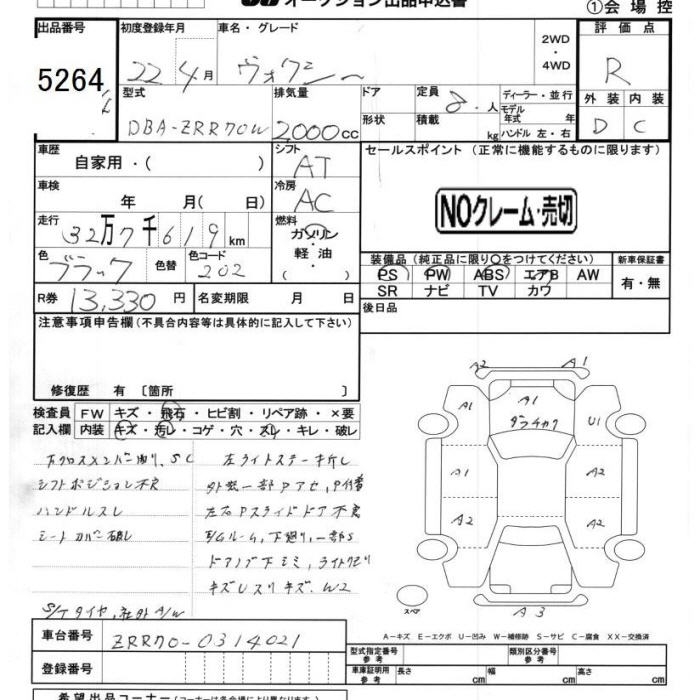 オークション出品申込書
①会場控
出品番号 初度登録年月 車名・グレード 2WD・4WD 評価点
5264 22年4月 ヴォクシー R
型式 排気量 ドア 定員 8.人 ディーラー・並行 外装 内装
DBA-ZRR70W 2,000cc 形状 積載 kg モデル年式 年 ハンドル 左・右 D C
車歴 自家用・( ) シフト AT セールスポイント (正常に機能するものに限ります)
車検 年 月(日) 冷房 AC
NOクレーム・売切
走行 32万7千619km 燃料 ガソリン・軽油・( )
色 ブラック 色替 色コード 202
装備品(純正品に限り○をつけてください) 新車保証書
PS PW ABS エアB AW 有・無
SR ナビ TV カワ
R券 13,330円 名変期限 月 日 後日品
注意事項申告欄(不具合内容等は具体的に記入して下さい)
修復歴 有〔箇所 〕
検査員 FW キズ・飛石・ヒビ割・リペア跡・×要
記入欄 内装 キズ・汚レ・コゲ・穴・スレ・キレ・破レ
シフトポジション不良
ハンドルスレ
シートカバー破レ
S/Tタイヤ,社外A/W
左ライトステー折レ
左右Pスライドドア不良
E/Gルーム,下廻リ,一部S
キズレスリキズ.W2
A2 A1
A1 A1 U1
A1 A2
A2 A2
A3
スペア
A-キズ E-エクボ U-凹み W-補修跡 S-サビ C-腐食 XX-交換済
車台番号 ZRR70-0314021
登録番号
型式指定番号 参考 類別区分番号 参考
車庫証明用 参考 長さ cm 幅 cm 高さ cm
希望出品コーナー(コーナーは各会場により異なります)